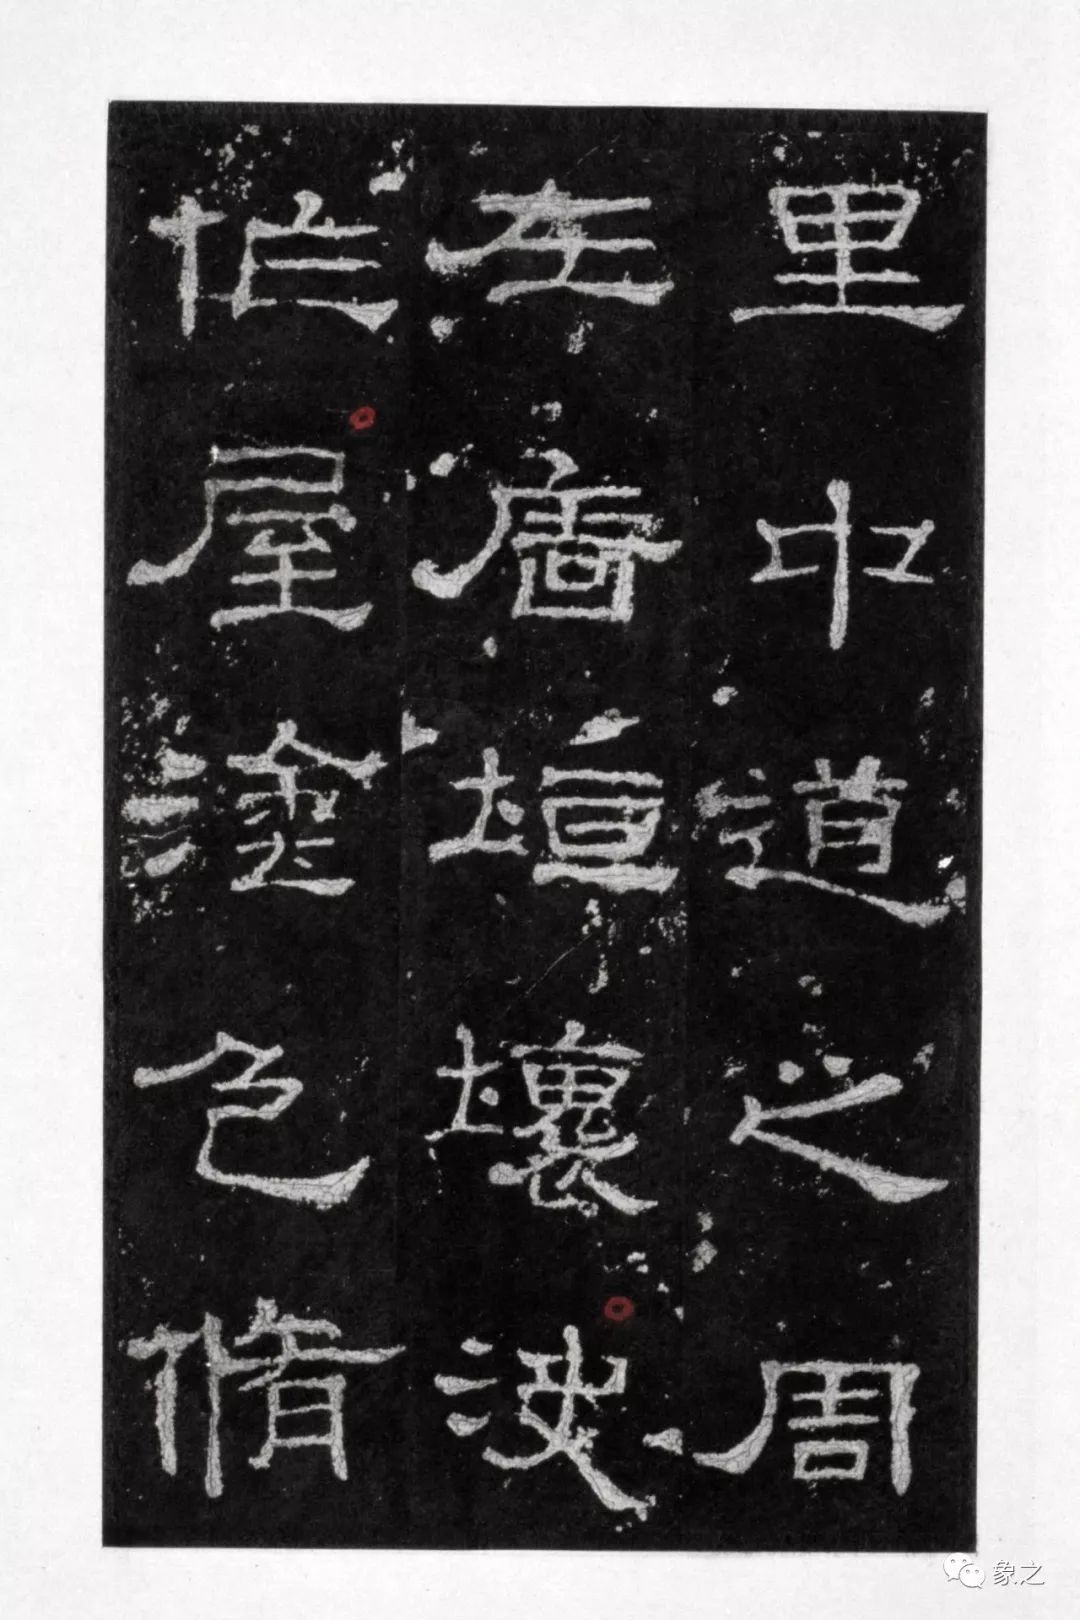 里中道之周
左廧垣壞決
作屋塗色脩
象之